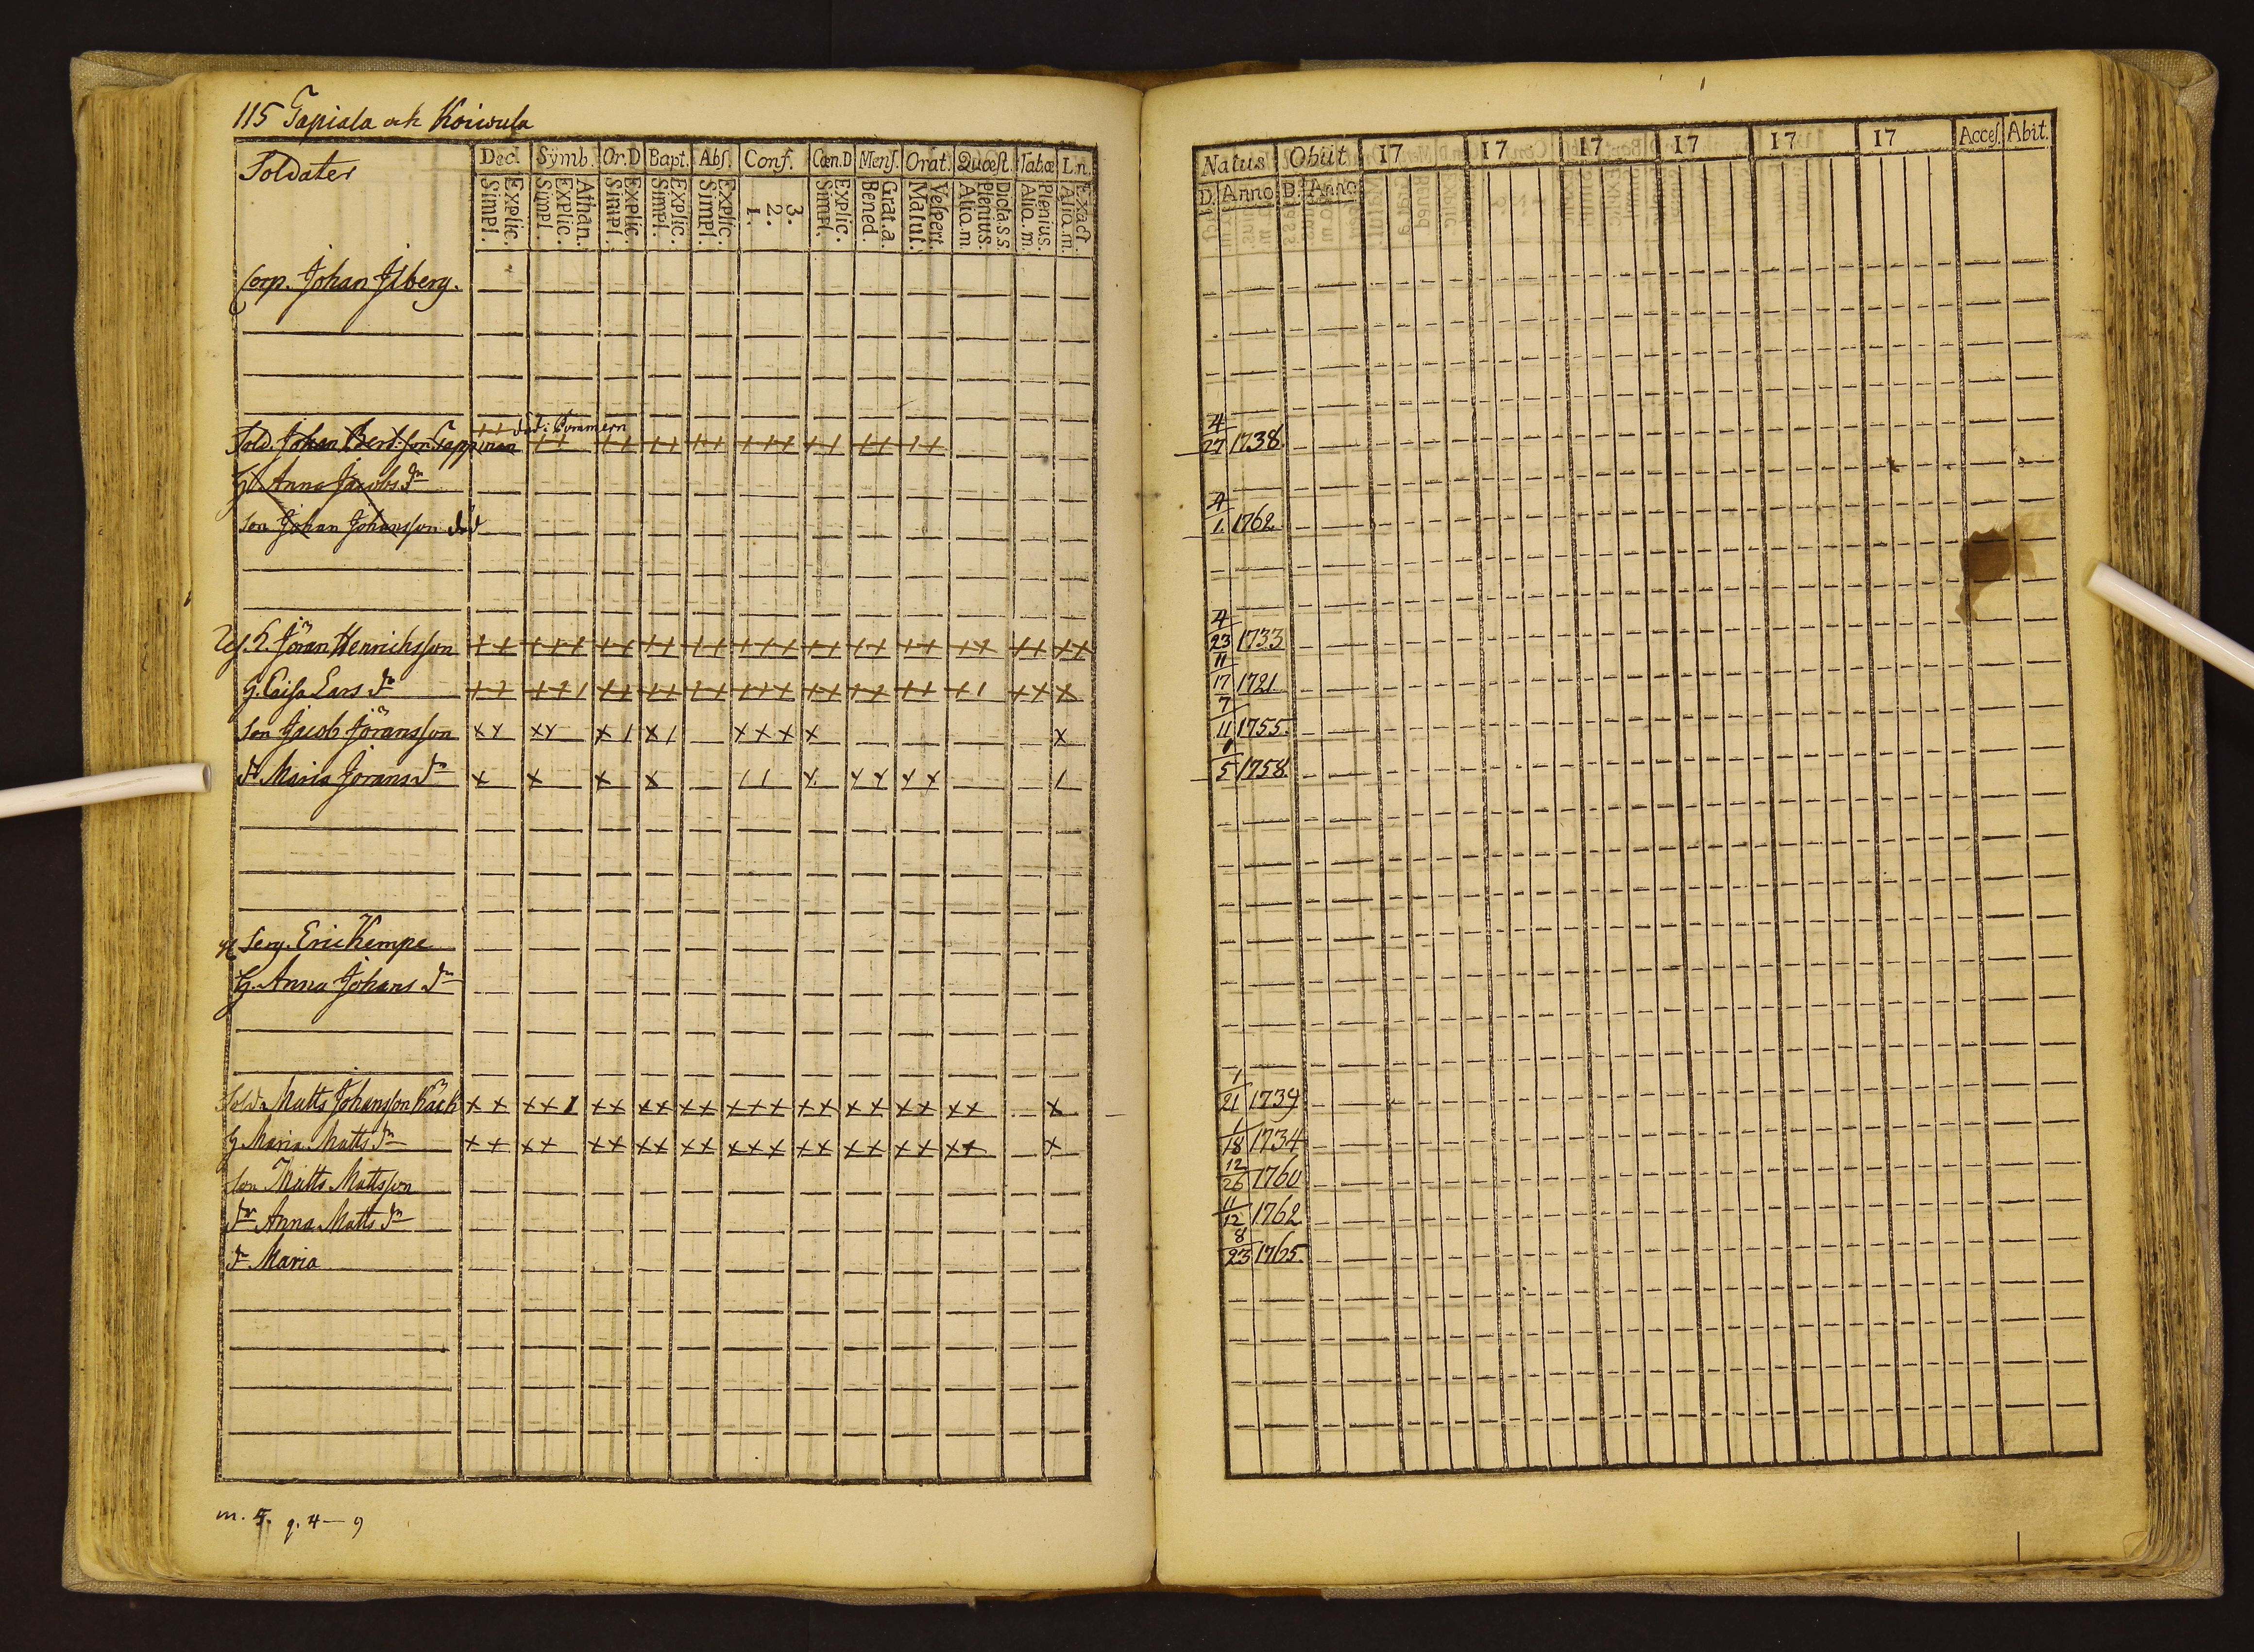 115 Tapiala och Koiwula
Soldater
Decl. Symb. Or.D Bapt. Abs. Conf. Cœn.D Mens. Orat. Quœst. Tabœ L.n.
Simpl. Explic. Simpl. Explic. Athan. Simpl. Explic. Simpl. Explic. Simpl. Explic. 1. 2. 3. Simpl. Explic. Bened. Grat.a. Matut. Vespert. Aliq.m. Plenius. Dicta.s.s. Aliq.m. Plenius. Aliq.m. Exact.
Corp. Johan Jsberg.
död i Pommern
Sold. Johan Bertilsson Tappinen
H. Anna Jacobs dr
son Johan Johansson död
Jöran Henrichsson
H. Caisa Lars dr
son Jacob Jöransson
dr Maria Jörans dr
Serg. Eric Kempe
H. Anna Johans dr
Sold. Matts Johansson Käck
H. Maria Matts dr
son Matts Mattsson
dr Anna Matts dr
dr Maria
m. 5. q. 4 — 9
Natus Obiit 17 17 17 17 17 17 Acces. Abit.
D. Anno D. Anno
4/27 1738.
4/1. 1762.
4/23 1733.
11/17 1721.
7/11 1755.
1/5 1758.
1/21 1739
1/18 1734
12/26 1760
11/12 1762
8/23 1765.